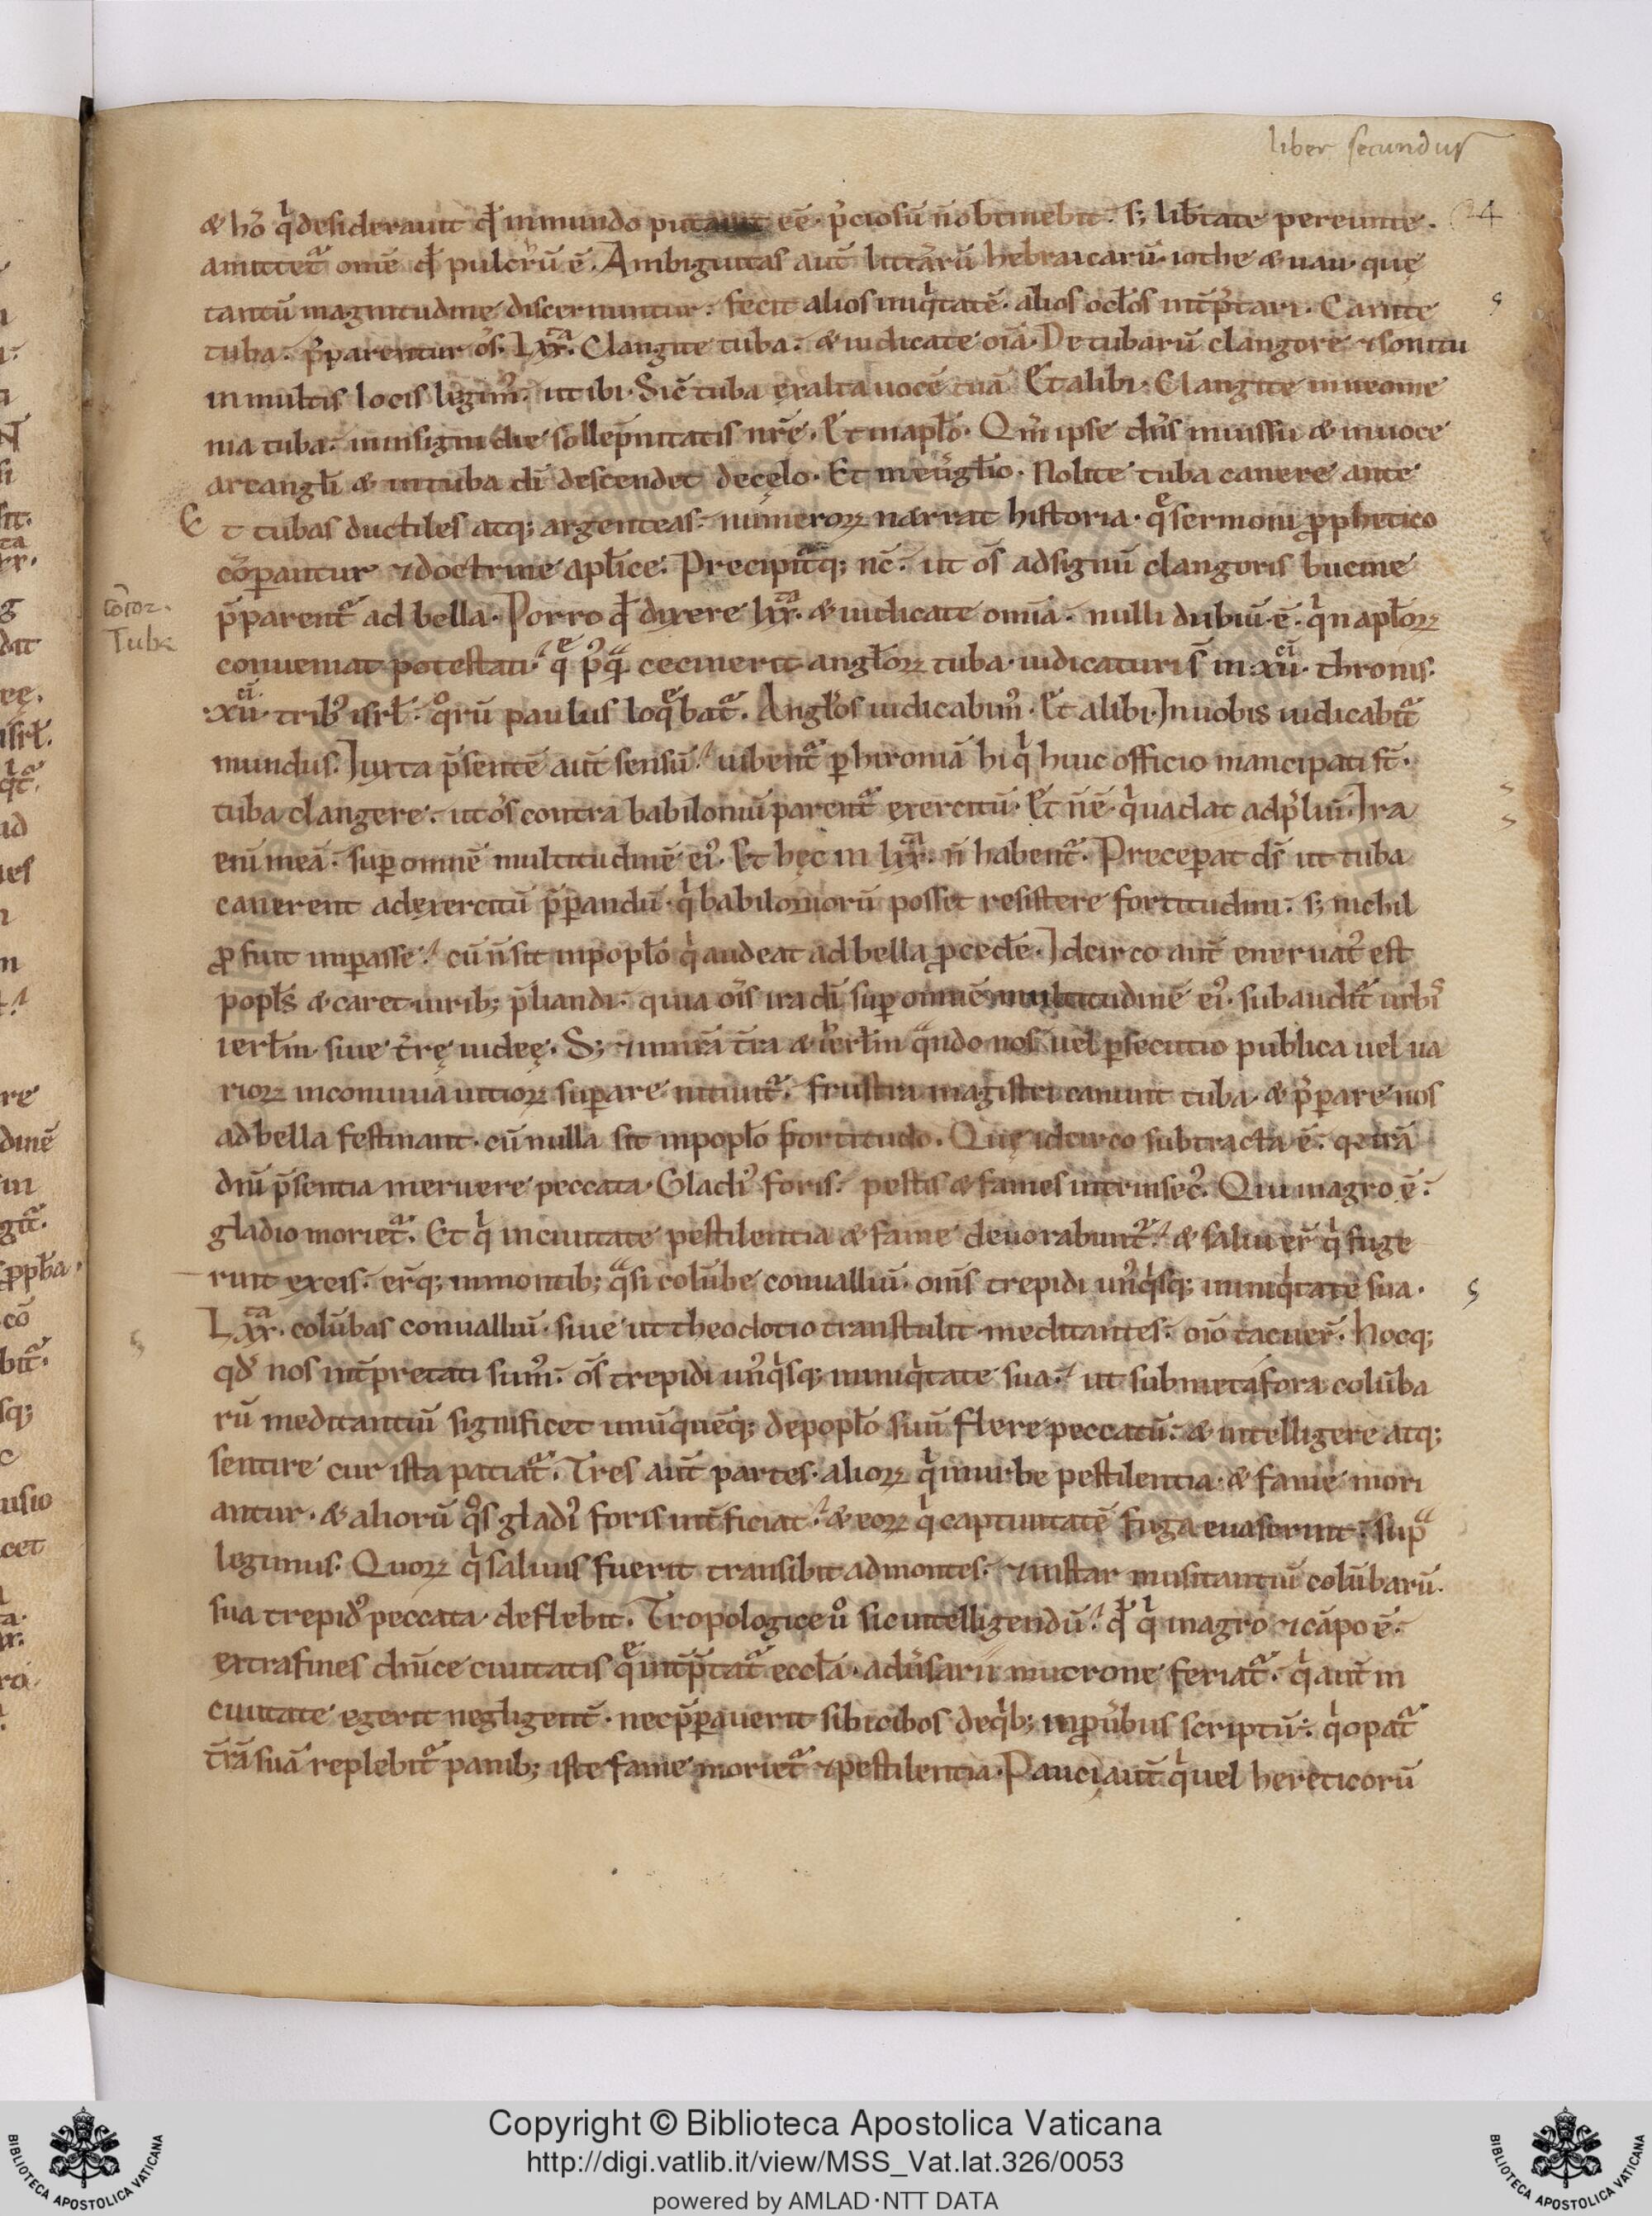 liber secundus
24
& hoc̄ qͥ desiderauit qđ in mundo putauit eē· p̄ciosū ñ obtinebit. s; lib̄tate pereunte.
amittet᷑ omē qđ pulcrū ē. Ambiguitas aut̄ litt̄arū hebraicarū· iothe & uau· quę
tantū magnitudine discernuntur· fecit alios iniqͥtatē· alios oc̄los int̄p̄tari. Canite
tuba· p̄parentur os̄. Lxx᷒ͣ. Clangite tuba· & iudicate oīa. De tubarū clangore & sonitu
in multis locis legim᷒· ut ibi· Sic̄ tuba exalta uocē tuā. Et alibi· Clangite in neome
nia tuba· in insigni die sollēpnitatis nr̄ę. Et in apl̄o· Qm̄ ipse dn̄s in iussu & in uoce
arcangl̄i & in tuba dī descendet de cęlo. Et in eūgl̄io· Nolite tuba canere ante
Et tubas ductiles atq; argenteas· numeroꝝ narrat historia· qͤ sermoni ꝓphetico
cōpantur & doctrine apl̄ice. Precipit᷑q; nc̄· ut os̄ ad signū clangoris bucine
cōcor.
Tube
p̄parent᷑ ad bella. Porro qđ dixere lxxͭͣ· & iudicate omīa· nulli dubiū ē· qͥn apl̄oꝝ
conueniat potestati· qͤ p᷒qͣ cecinerit angl̄oꝝ tuba· iudicaturi s̄ in xiiͨͥ thronis·
xiiͨͥ tribꝰ isrl̄· qͦrū paulus loqͤbat᷑. Angl̄os iudicabim᷒. Et alibi· In uobis iudicabit᷑
mundus. Iuxta p̄sentē aut̄ sensū· iubent᷑ ꝑ hironiā hi qͥ huic officio mancipati st̄·
tuba clangere· ut os̄ contra babiloniū parent᷑ exercitū. Et ñ ē qͥ uadat ad p̄liū. Ira
enī mea· suꝑ omnē multitudinē eiꝰ. Et hęc in lxxͭͣ· ñ habent᷑. Preceꝑat ds̄ ut tuba
canerent ad exercitū p̄parandū· qͥ babiloniorū posset resistere fortitudini· s; nichil
ꝓfuit imꝑasse· cū ñ sit in popl̄o qͥ audeat ad bella ꝓcedere. Idcirco aut̄ eneruatꝰ est
popl̄s & caret uirib; p̄liandi· quia oīs ira dī suꝑ omnē multitudinē eiꝰ· subaudit᷑ urbis
ierl̄m siue t̄rę iudeę. S; & in nr̄a t̄ra & ierl̄m qͣndo nos uel ꝑsecutio publica uel ua
rioꝝ in conuiuia uitioꝝ suꝑare nitunt᷑· frustra magistri canunt tuba & p̄parare nos
ad bella festinant· cū nulla sit in popl̄o fortitudo. Quę idcirco subtracta ē· qr irā
dn̄i p̄sentia meruere peccata. Gladiꝰ foris· pestis & fames intrinsecꝰ. Qui in agro ē·
gladio moriet᷑. Et qͥ in ciuitate pestilentia & fame deuorabunt᷑· & saluiēr qͥ fuge
runt ex eis· er̄tq; in montib; qͣsi colūbe conualliū· omīs trepidi unꝰqͥsq; in iniqͥtate sua.
Lxxͭͣ· colūbas conualliū· siue ut theodotio transtulit meditantes· oīo tacuer̄. Hocq;
qđ nos int̄pretati sum᷒· os̄ trepidi unꝰqͥsq; in iniqͥtate sua· ut sub metafora colūba
rū meditantiū significet unūquēq; de popl̄o suū flere peccatū· & intelligere atq;
sentire cur ista patiat᷑. Tres aut̄ partes· alioꝝ qͥ in urbe pestilentia & fame mori
antur· & aliorū qͦs gladiꝰ foris int̄ficiat· & eoꝝ qͥ captiuitatē fuga euaserint· supͣ
legimus. Quoꝝ qͥ saluus fuerit transibit ad montes· & instar musitantiū colūbarū·
sua trepidꝰ peccata deflebit. Tropologice uͦ sic intelligendū· qđ qͥ in agro & cāpo ē·
extra fines dn̄ice ciuitatis qͤ int̄p̄tat᷑ eccl̄a· adūsarii mucrone feriat᷑· qͥ aut̄ in
ciuitate egerit negligent̄· nec p̄parauerit sibi cibos de qͥb; in ꝓūbiis scriptū· qͥ opat᷑
t̄rā suā replebit᷑ panib; iste fame moriet᷑ & pestilentia. Pauci aut̄ qͥ uel hereticorū
Copyright © Biblioteca Apostolica Vaticana
http://digi.vatlib.it/view/MSS_Vat.lat.326/0053
powered by AMLAD·NTT DATA
BIBLIOTECA APOSTOLICA VATICANA
BIBLIOTECA APOSTOLICA VATICANA